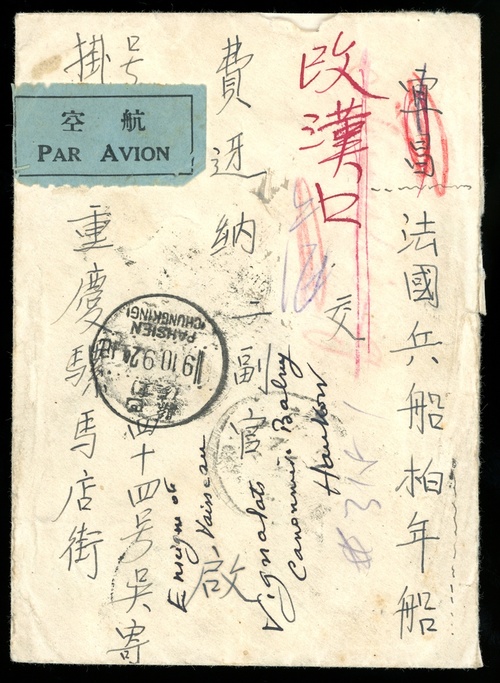 宜昌
法國兵船柏年船
改漢口
交
費迓納二副官
啟
掛号
航空
PAR AVION
重慶騾馬店街
四十四号吳寄
PAHSIEN
(CHUNGKING)
19.10.92
Enseigne de
Vaisseau
Vignalats
Canonnière Balny
Hankow